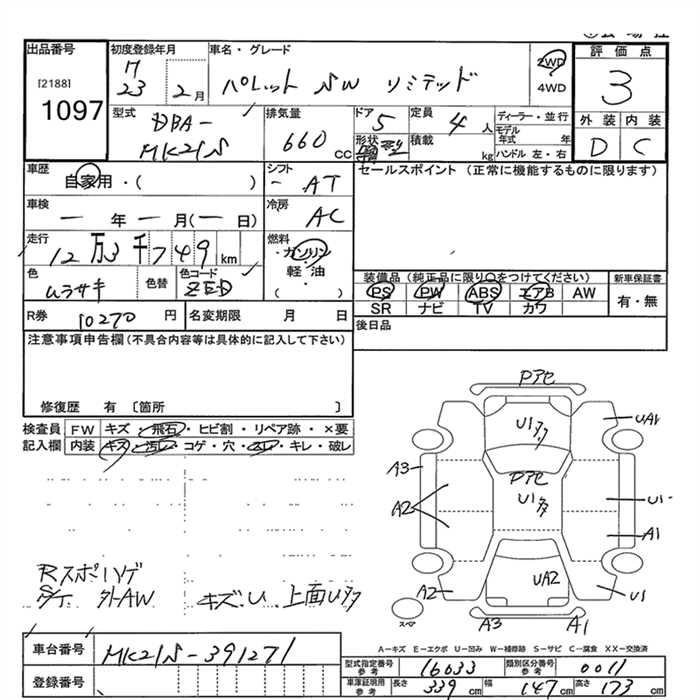 出品番号
[2188]
1097
初度登録年月
H 23 2 月
車名・グレード
パレット SW リミテッド
2WD
4WD
評価点
3
外装 内装
D C
型式
DBA-
MK21S
排気量
660 cc
ドア
5
形状
定員
4 人
積載
kg
ディーラー・並行
モデル年式 年
ハンドル 左・右
車歴
自家用・( )
シフト
- AT
セールスポイント (正常に機能するものに限ります)
車検
ー 年 ー 月(ー 日)
冷房
AC
走行
12 万 3 千 7 4 9 km
燃料
ガソリン
・
軽油
・
( )
色
ムラサキ
色替
色コード
ZED
装備品 (純正品に限り○をつけてください)
PS PW ABS エアB AW
SR ナビ TV カワ
新車保証書
有・無
R券
10270 円
名変期限 月 日
後日品
注意事項申告欄(不具合内容等は具体的に記入して下さい)
修復歴 有 〔箇所 〕
検査員記入欄
FW キズ・飛石・ヒビ割・リペア跡・×要
内装 キズ・汚レ・コゲ・穴・スレ・キレ・破レ
Pアセ
U1
UA1
A3
Pアセ
U1
U1
A2
A1
UA2
A2
U1
スペア
A3
A1
Rスポハゲ
S/T 外AW キズ.U 上面U
A-キズ E-エクボ U-凹み W-補修跡 S-サビ C-腐食 XX-交換済
車台番号
MK21S-391271
登録番号
型式指定番号 参考
16033
類別区分番号 参考
0011
車庫証明用 参考
長さ 339 cm 幅 147 cm 高さ 173 cm